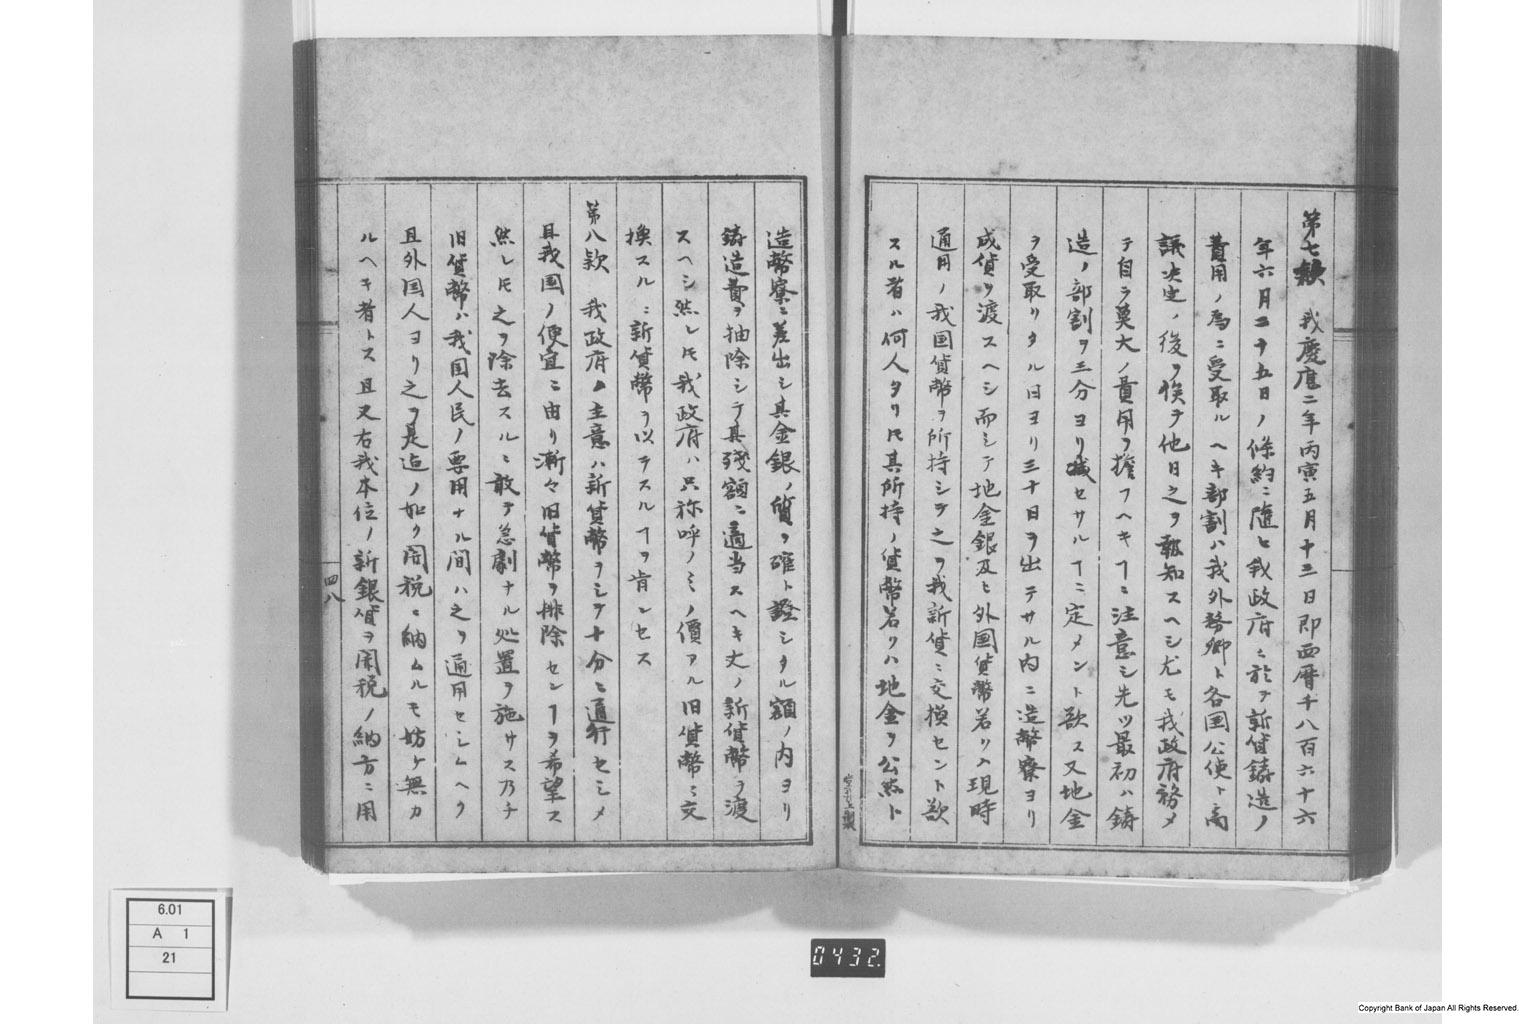 第七款 我慶應二年丙寅五月十三日即西暦千八百六十六
年六月二十五日ノ條約ニ隨ヒ我政府ニ於テ新貨鋳造ノ
費用ノ為ニ受取ルヘキ部割ハ我外務卿ト各国公使ト商
議决定ノ後ヲ俟チ他日之ヲ報知スヘシ尤モ我政府務メ
テ自ラ莫大ノ費用ヲ擔フヘキヿニ注意シ先ツ最初ハ鋳
造ノ部割ヲ三分ヨリ減セサルヿニ定メント欲ス又地金
ヲ受取リタル日ヨリ三十日ヲ出テサル内ニ造幣寮ヨリ
成貨ヲ渡スヘシ而シテ地金銀及ヒ外国貨幣若リハ現時
通用ノ我国貨幣ヲ所持シテ之ヲ我新貨ニ交換セント欲
スル者ハ何人タリ𪜈其所持ノ貨幣若リハ地金ヲ公然ト
造幣寮ニ差出シ其金銀ノ質ヲ確ト證シタル額ノ内ヨリ
鋳造費ヲ抽除シテ其殘額ニ適当スヘキ丈ノ新貨幣ヲ渡
スヘシ然レ𪜈我政府ハ只称呼ノミノ價アル旧貨幣ニ交
換スルニ新貨幣ヲ以テスルヿヲ肯ンセス
第八款 我政府ノ主意ハ新貨幣ヲシテ十分ニ通行セシメ
且我国ノ便宜ニ由リ漸々旧貨幣ヲ排除センヿヲ希望ス
然レ𪜈之ヲ除去スルニ敢テ急劇ナル処置ヲ施サス乃チ
旧貨幣ハ我国人民ノ要用ナル間ハ之ヲ通用セシムヘク
且外国人ヨリ之ヲ是迠ノ如ク関税ニ納ムルモ妨ケ無カ
ルヘキ者トス且又右我本位ノ新銀貨ヲ関税ノ納方ニ用
四八
6.01
A 1
21
0432.
Copyright Bank of Japan All Rights Reserved.